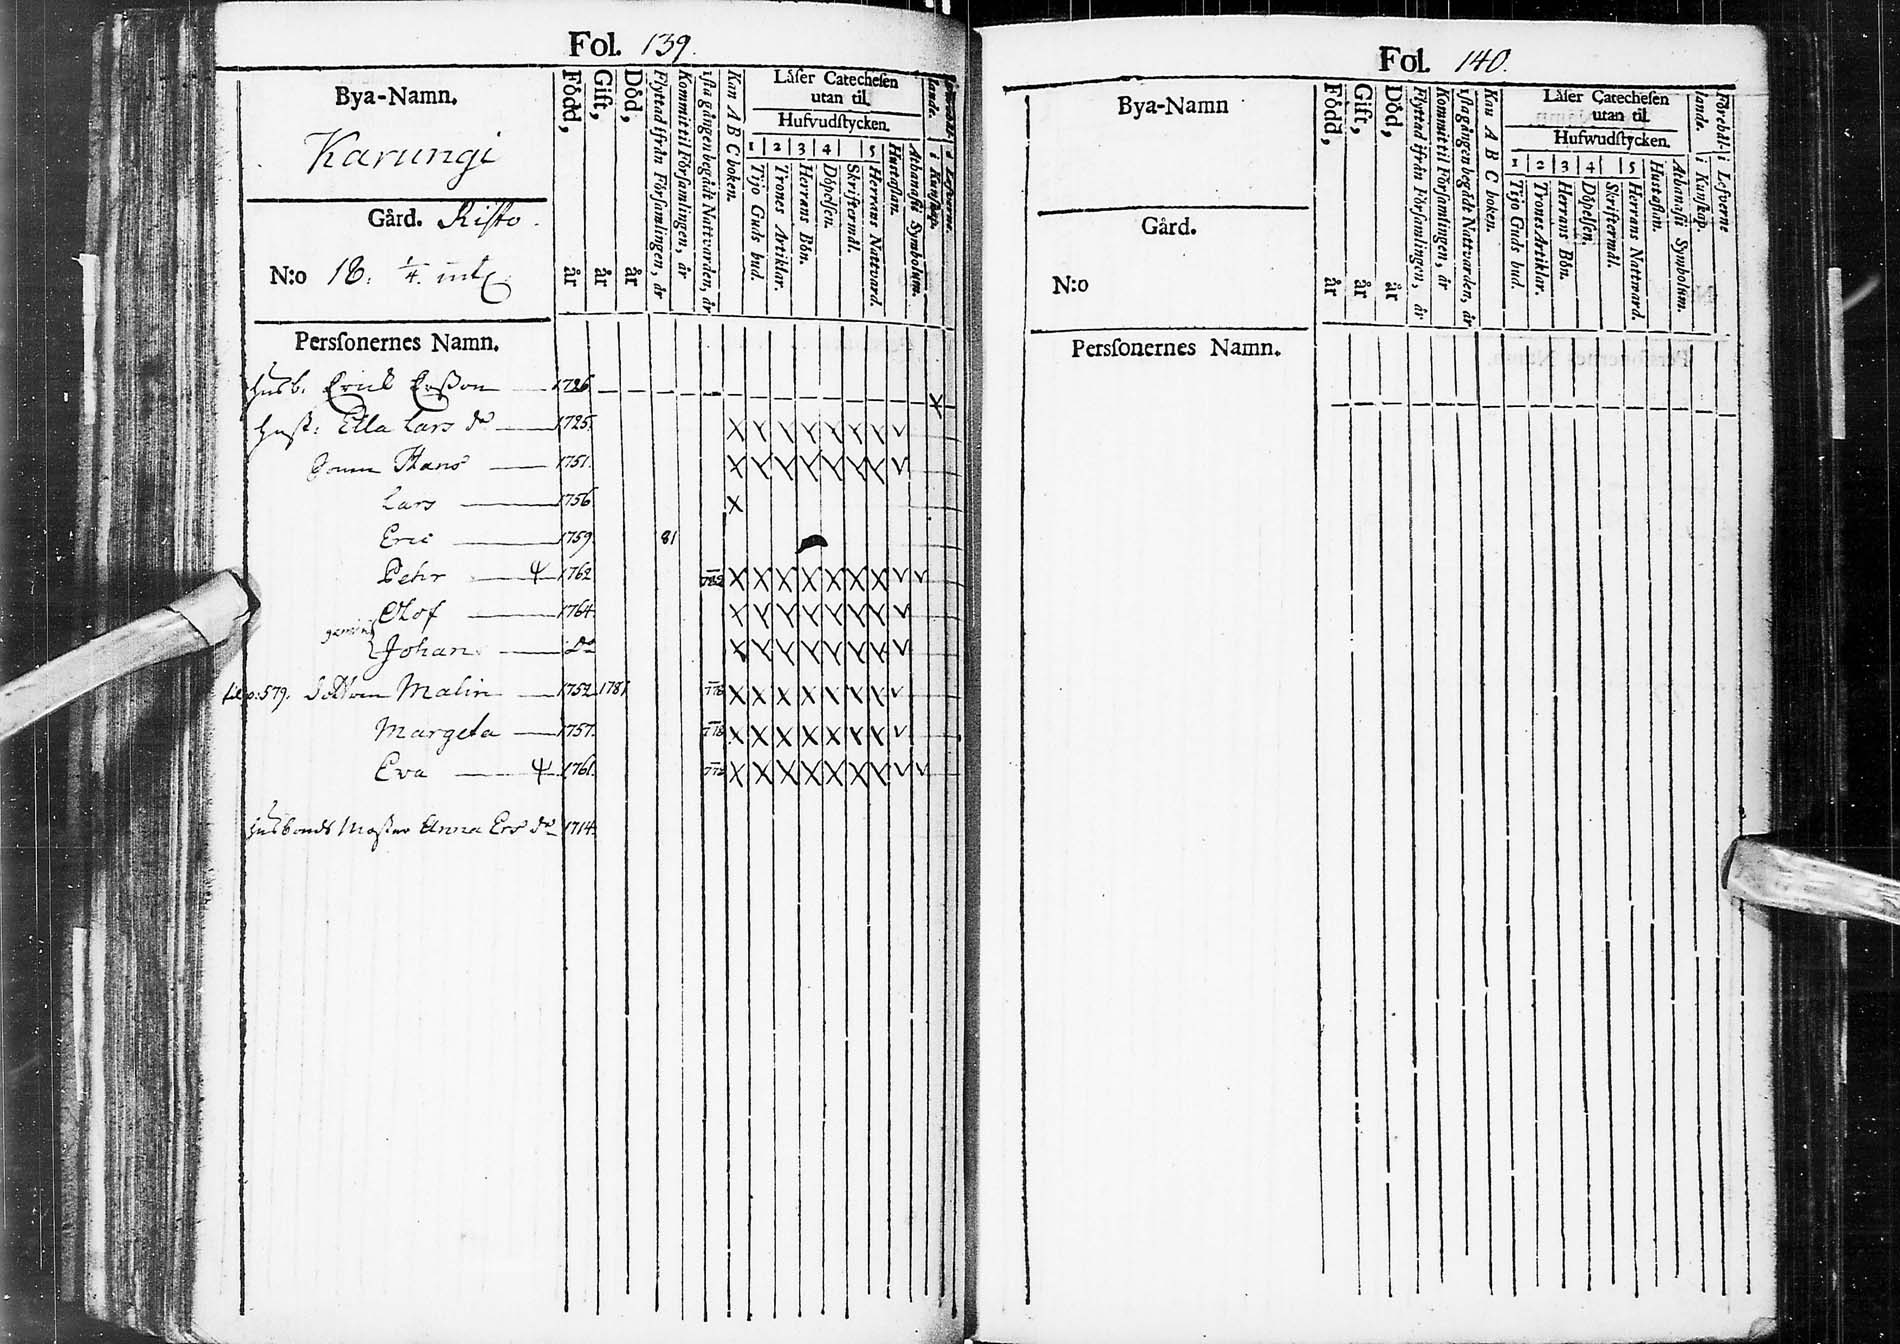 Fol. 139.
Bya-Namn.
Karungi
Gård. Risto.
N:o 18. 1/4. mtl.
Född, år
Gift, år
Död, år
Flyttad ifrån Församlingen, år
Kommit til Församlingen, år
1sta gången begådt Nattvarden, år
Kan A B C boken.
Låser Catechesen
utan til.
Hufvudstycken.
1 2 3 4 5
Tijo Guds bud.
Trones Artiklar.
Herrans Bön.
Döpelsen.
Skriftermål.
Herrans Nattvard.
Hustaflan.
Athanasii Symbolum.
lande. i Kunskap.
i Lefverne.
Perssonernes Namn.
Husb. Erick Ersson 1726
Hust: Ella Lars dr 1725.
Sonen Hans 1751.
Lars 1756
Eric 1759 81
Pehr 1762 782
Olof 1764
Johan Do
p: 579. Dottren Malin 1752 1781 778
Margeta 1757. 778
Eva 1761. 778
Husbonds Moster Anna Ers dr 1714.
Fol. 140.
Bya-Namn
Gård.
N:o
Född, år
Gift, år
Död, år
Flyttad ifrån Församlingen, år
Kommit til Församlingen, år
1sta gången begådt Nattvarden, år
Kan A B C boken.
Låser Catechesen
utan til.
Hufwudstycken.
1 2 3 4 5
Tijo Guds bud.
Trones Artiklar.
Herrans Bön.
Döpelsen.
Skriftermål.
Herrans Nattward.
Hustaflan.
Athanasii Symbolum.
lande. i Kunskap.
Förebl- i Lefverne
Perssonernes Namn.